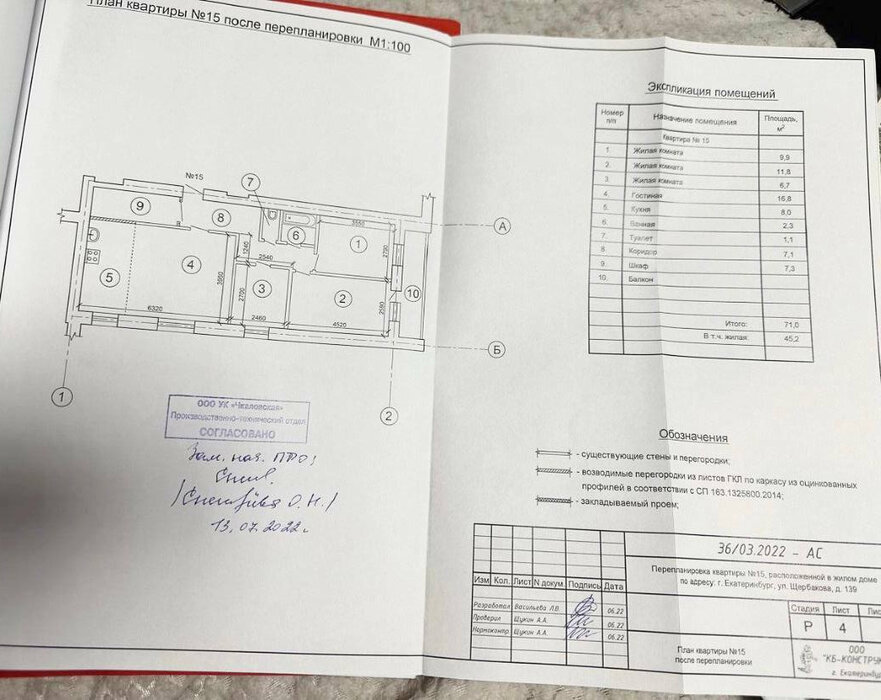 План квартиры №15 после перепланировки М1:100
№15
7
9
8
6
1
А
3550
1240
2540
2790
4
3950
5
3
2700
2
10
2580
6320
2460
4520
Б
1
2
ООО УК «Чкаловская»
Производственно-технический отдел
СОГЛАСОВАНО
Зам. нач. ПТО:
13.07.2022г.
Экспликация помещений
Номер п/п Назначение помещения Площадь, м²
Квартира № 15
1. Жилая комната 9,9
2. Жилая комната 11,8
3. Жилая комната 6,7
4. Гостиная 16,8
5. Кухня 8,0
6. Ванная 2,3
7. Туалет 1,1
8. Коридор 7,1
9. Шкаф 7,3
10. Балкон
Итого: 71,0
В т.ч. жилая: 45,2
Обозначения
- существующие стены и перегородки;
- возводимые перегородки из листов ГКЛ по каркасу из оцинкованных
профилей в соответствии с СП 163.1325800.2014;
- закладываемый проем;
36/03.2022 - АС
Перепланировка квартиры №15, расположенной в жилом доме
по адресу: г. Екатеринбург, ул. Щербакова, д. 139
Изм Кол. Лист N докум. Подпись Дата
Разработал Васильева Л.В. 06.22
Проверил Щукин А.А. 06.22
Нормоконтр. Щукин А.А. 06.22
Стадия Лист
Р 4
План квартиры №15
после перепланировки
ООО
"КБ-КОНСТРУК
г. Екатеринбург